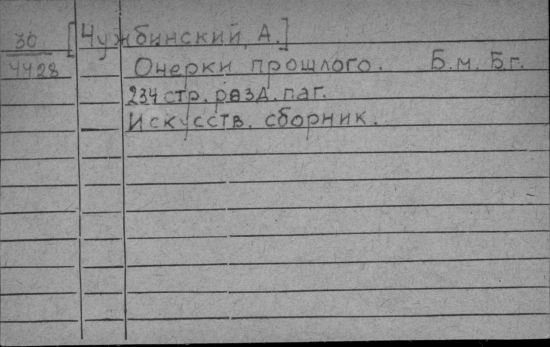 30 [Чужбинский, А.]
4428 Очерки прошлого. Б.м. Б.г.
234 стр. разд. паг.
Искусств. сборник.